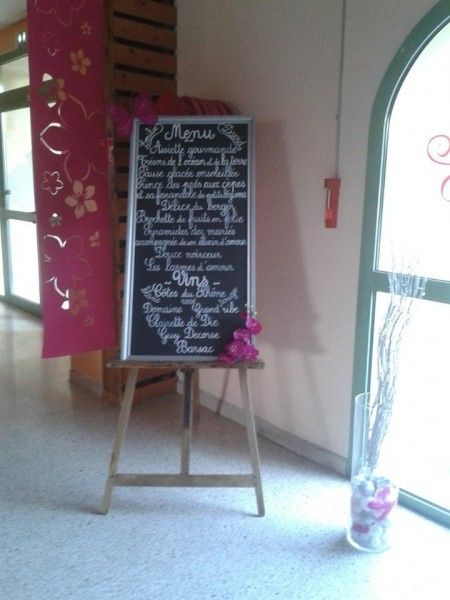 Menu
Assiette gourmande
Trésors de l'océan et de la terre
Pause glacée ensoleillée
Prince des prés aux cèpes
et sa farandole de petits légumes
Délice du berger
Brochette de fruits en folie
Pyramides des mariés
accompagnée de son élixir d'amour
Douce noirceur
Les larmes d'amour
- Vins -
Côtes du Rhône
Domaine Grand ribe
Clairette de Die
Guy Decorse
Barsac